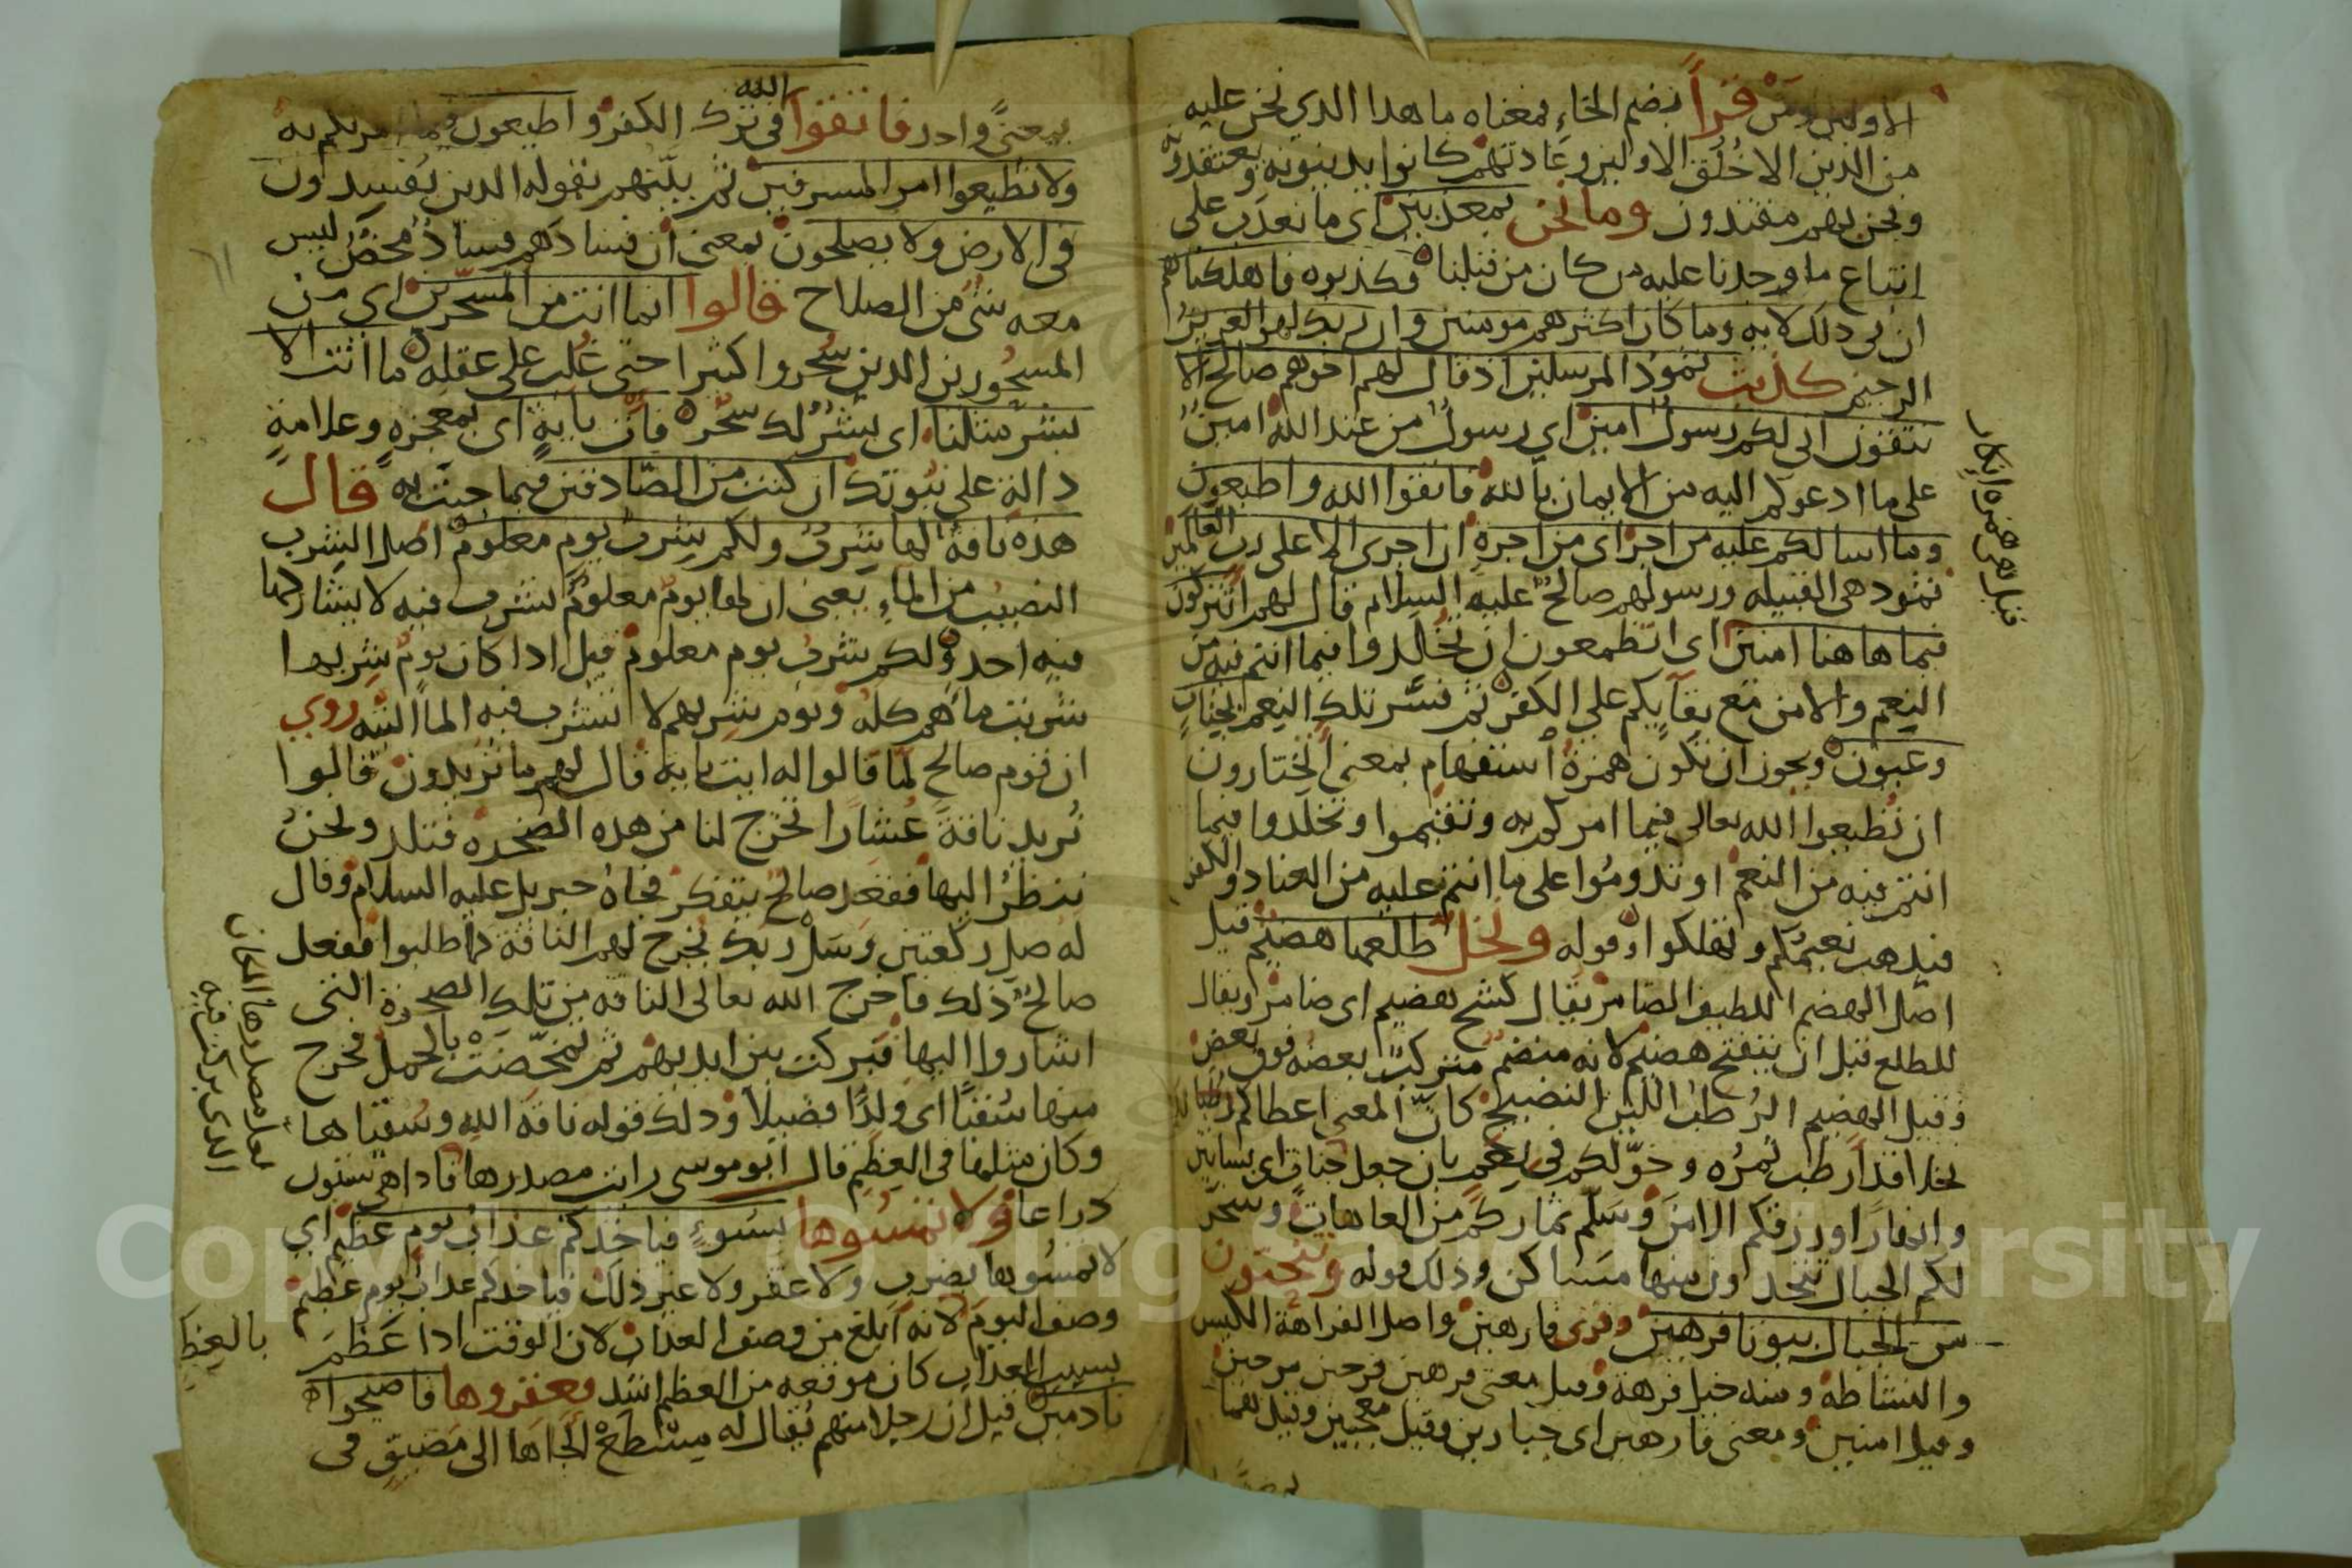 الاولين ومن قرأ بضم الخاء فمعناه ما هذا الذي نحن عليه
من الدين الا خُلُق الاولين وعادتهم كانوا يدينونه ويعتقدونه
ونحن بهم مقتدون وما نحن بمعذبين اى ما نعذب على
اتباع ما وجدنا عليه من كان من قبلنا فكذبوه فاهلكناهم
ان في ذلك لايه وما كان اكثرهم مومنين وان ربك لهو العزيز
الرحيم كذبت ثمود المرسلين اذ قال لهم اخوهم صالح الا
تتقون انى لكم رسول امين اي رسول من عند الله امين
على ما ادعوكم اليه من الايمان بالله فاتقوا الله واطيعون
وما اسالكم عليه من اجر اى من اجرة ان اجرى الا على رب العالمين
ثمود هى القبيله ورسولهم صالح عليه السلام قال لهم اتتركون
فيما هاهنا امنين اى اتطمعون ان تخالدوا فيما انتم فيه من
النعيم والامن مع بقايكم على الكفر ثم فسر تلك النعم بجنات
وعيون ويجوز ان تكون همزة استفهام بمعنى الختارون
ان تطيعوا الله تعالى فيما امركم به وتقيموا وتخلدوا فيما
انتم فيه من النعم او تدوموا على ما انتم عليه من العناد والكفر
فيذهب نعيمكم وتهلكوا وقوله ونخل طلعها هضيم قيل
اصل الهضم اللطيف الضامر يقال كشح هضيم اى ضامر ويقال
للطلع قبل ان ينفتح هضيم لانه منضم متركب بعضه فوق بعض
وقيل الهضيم الرطب اللين النضيج كان المعنى اعطاكم
نخلا قد ارطب ثمره وخولكم في نعم بان جعل جنات اى بساتين
وانهارا ورزقكم الامن وسلم ثماركم من العاهات وسخر
لكم الجبال تتخدون منها مساكن وذلك قوله وتنحتون
من الجبال بيوتا فرهين وقرى فارهين واصل الفراهة الكيس
والنشاطه ومنه خيل فرهة وقيل معنى فرهين فرحين مرحين
وقيل امنين ومعنى فارهين اى جبارين وقيل معجبين وقيل هما
قيل هى همزه انكار
بمعنىً وادر فاتقوا الله فى ترك الكفر واطيعون فيما امرتكم به
ولا تطيعوا امر المسرفين ثم بينهم بقوله الدين يفسدون
فى الارض ولا يصلحون بمعنى ان فسادهم فساد محض ليس
معه شى من الصلاح قالوا انما انت من المسحرين اي من
المسحورين الدين سحروا كثيرا حتى غلب على عقله ما انت الا
بشر مثلنا اى بشر لك سحر فات باية اى بمعجزه وعلامة
دالة على نبوتك ان كنت من الصادقين فيما جيت به قال
هذه ناقة لها شرب ولكم شرب يوم معلوم اصل الشرب
النصيب من الماء يعنى ان لها يوم معلوم تشرب فيه لا يشاركها
فيه احد ولكم شرب يوم معلوم قيل ادا كان يوم شربها
شربت ماهم كله ويوم شربهم لا تشرب فيه الما البته روي
ان قوم صالح لما قالوا له ايت بايه قال لهم ما تريدون قالوا
نريد ناقة عشارا تخرج لنا من هده الصخره فتلد ونحن
ننظر اليها فقعد صالح يتفكر فجاه جبريل عليه السلام وقال
له صل ركعتين وسل ربك يخرج لهم الناقة كما طلبوا ففعل
صالح ذلك فاخرج الله تعالى الناقه من تلك الصخرة التى
اشاروا اليها فبركت بين ايديهم ثم تمخضت بالحمل فخرج
منها سقبًا اى ولدًا فصيلا ودلك قوله ناقة الله وسقياها
وكان مثلها فى العظم قال ابو موسى رايت مصدرها فادا هى ستون
دراعا ولا تمسوها بسوء فياخدكم عذاب يوم عظيم اي
لا تمسوها بضرب ولا عقر ولا غير ذلك فياخدكم عداب يوم عظيم
وصف اليوم لانه ابلغ من وصف العداب لان الوقت ادا عظم
بسبب العداب كان موقعه من العظم اشد فعقروها فاصبحوا
نادمين قيل ان رجلا منهم يقال له مسطع الجاها الى مضيق فى
لعله مصدرها المكان
الدى بركت فيه
بالعظم